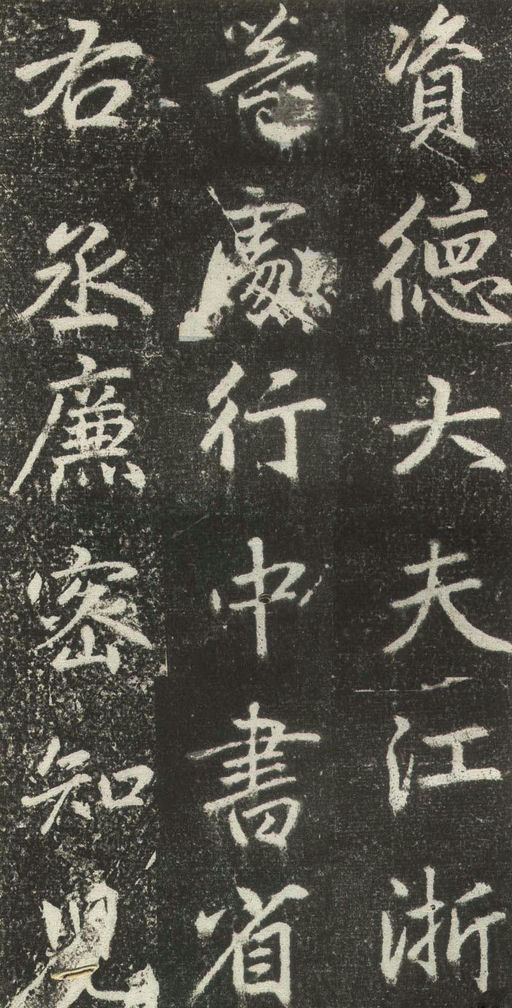 資德大夫江浙
等處行中書省
右丞廉密知